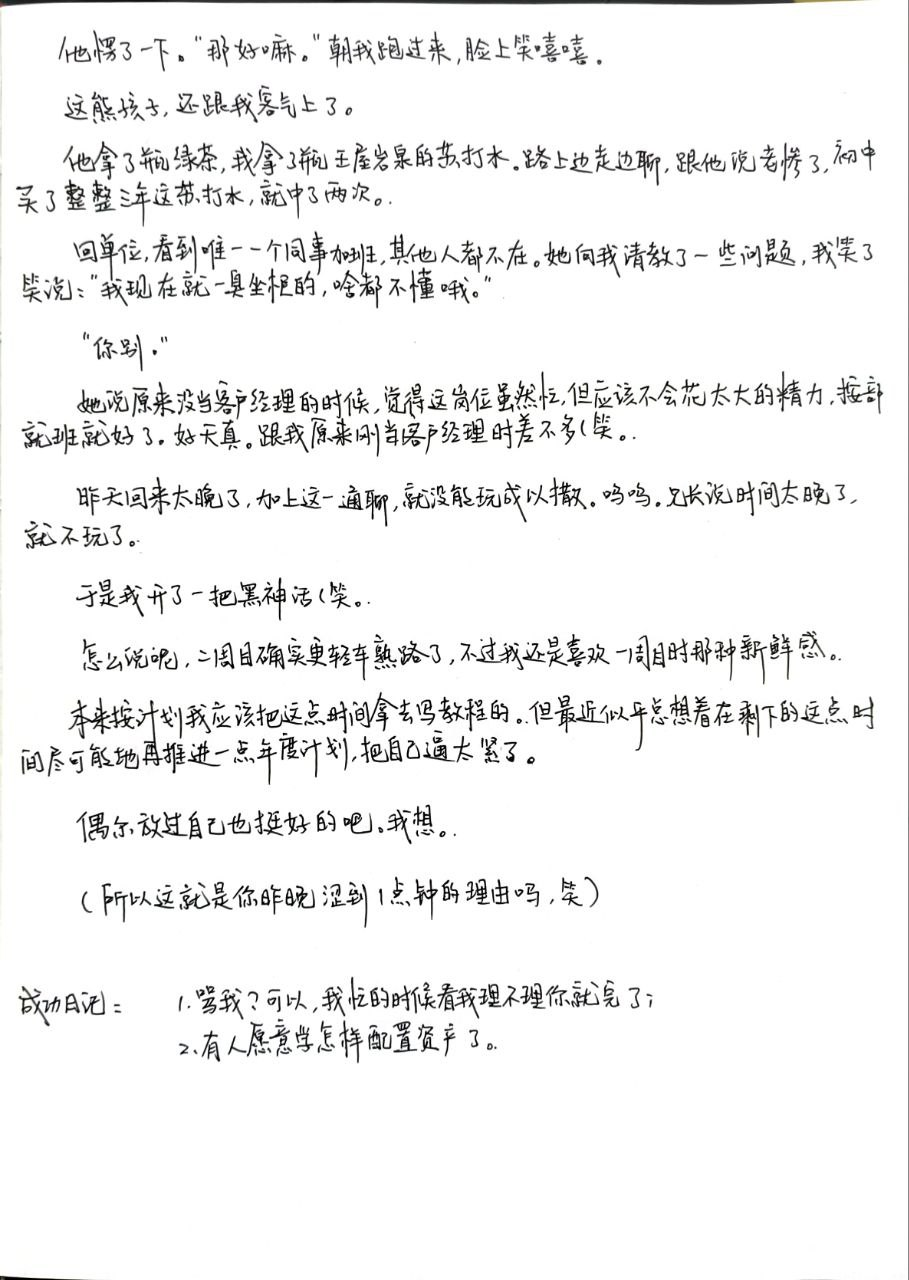 他愣了一下。“那好嘛。”朝我跑过来，脸上笑嘻嘻。
这熊孩子，还跟我客气上了。
他拿了瓶绿茶，我拿了瓶王屋岩泉的苏打水。路上边走边聊，跟他说老惨了，初中
买了整整三年这苏打水，就中了两次。
回单位，看到唯一一个同事加班，其他人都不在。她向我请教了一些问题，我笑了
笑说：“我现在就一臭坐柜的，啥都不懂哦。”
“你别。”
她说原来没当客户经理的时候，觉得这岗位虽然忙，但应该不会花太大的精力，按部
就班就好了。好天真。跟我原来刚当客户经理时差不多（笑。
昨天回来太晚了，加上这一通聊，就没能玩成以撒。呜呜。兄长说时间太晚了，
就不玩了。
于是我开了一把黑神话（笑。
怎么说呢，二周目确实更轻车熟路了，不过我还是喜欢一周目时那种新鲜感。
本来按计划我应该把这点时间拿去写教程的。但最近似乎总想着在剩下的这点时
间尽可能地再推进一点年度计划，把自己逼太紧了。
偶尔放过自己也挺好的吧。我想。
（所以这就是你昨晚涩到1点钟的理由吗，笑）
成功日记： 1.骂我？可以，我忙的时候看我理不理你就完了；
2.有人愿意学怎样配置资产了。